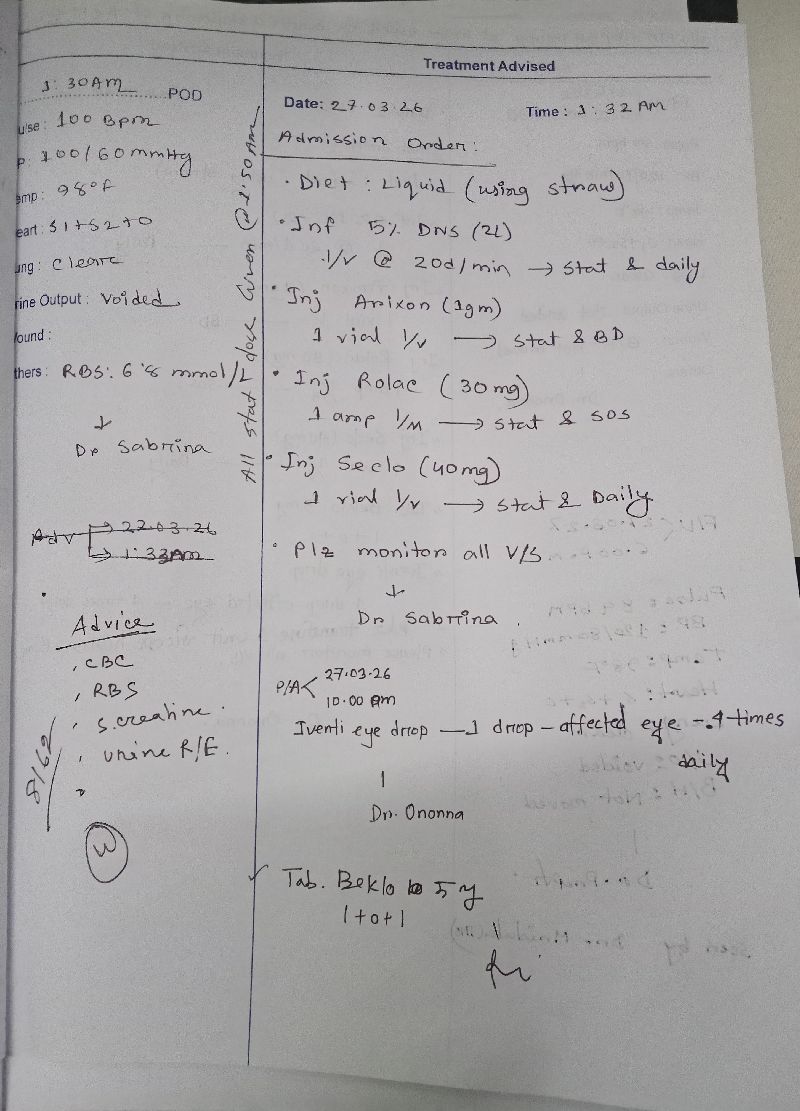 Treatment Advised
1:30AM POD
Pulse: 100 Bpm
P: 100/60 mmHg
emp: 98°F
eart: S1+S2+0
ung: Cleare
rine Output: Voided
ound:
thers: RBS: 6.8 mmol/L
Dr Sabrina
Adv 22.03.26
1:33AM
Advice
CBC
RBS
S.creatine
urine R/E.
All stat dose given @ 1:50 AM
Date: 27.03.26 Time: 1:32 AM
Admission Order:
• Diet: Liquid (using straw)
• Inf 5% DNS (2L)
I/V @ 20d/min → stat & daily
• Inj Arixon (1gm)
1 vial I/V → stat & BD
• Inj Rolac (30mg)
1 amp I/M → stat & SOS
• Inj Seclo (40mg)
1 vial I/V → stat & Daily
• Plz monitor all V/S
Dr Sabrina
P/A< 27.03.26
10.00 am
Iventi eye drop — 1 drop - affected eye - 4 times
daily
Dr. Ononna
Tab. Beklo 5 mg
1+0+1